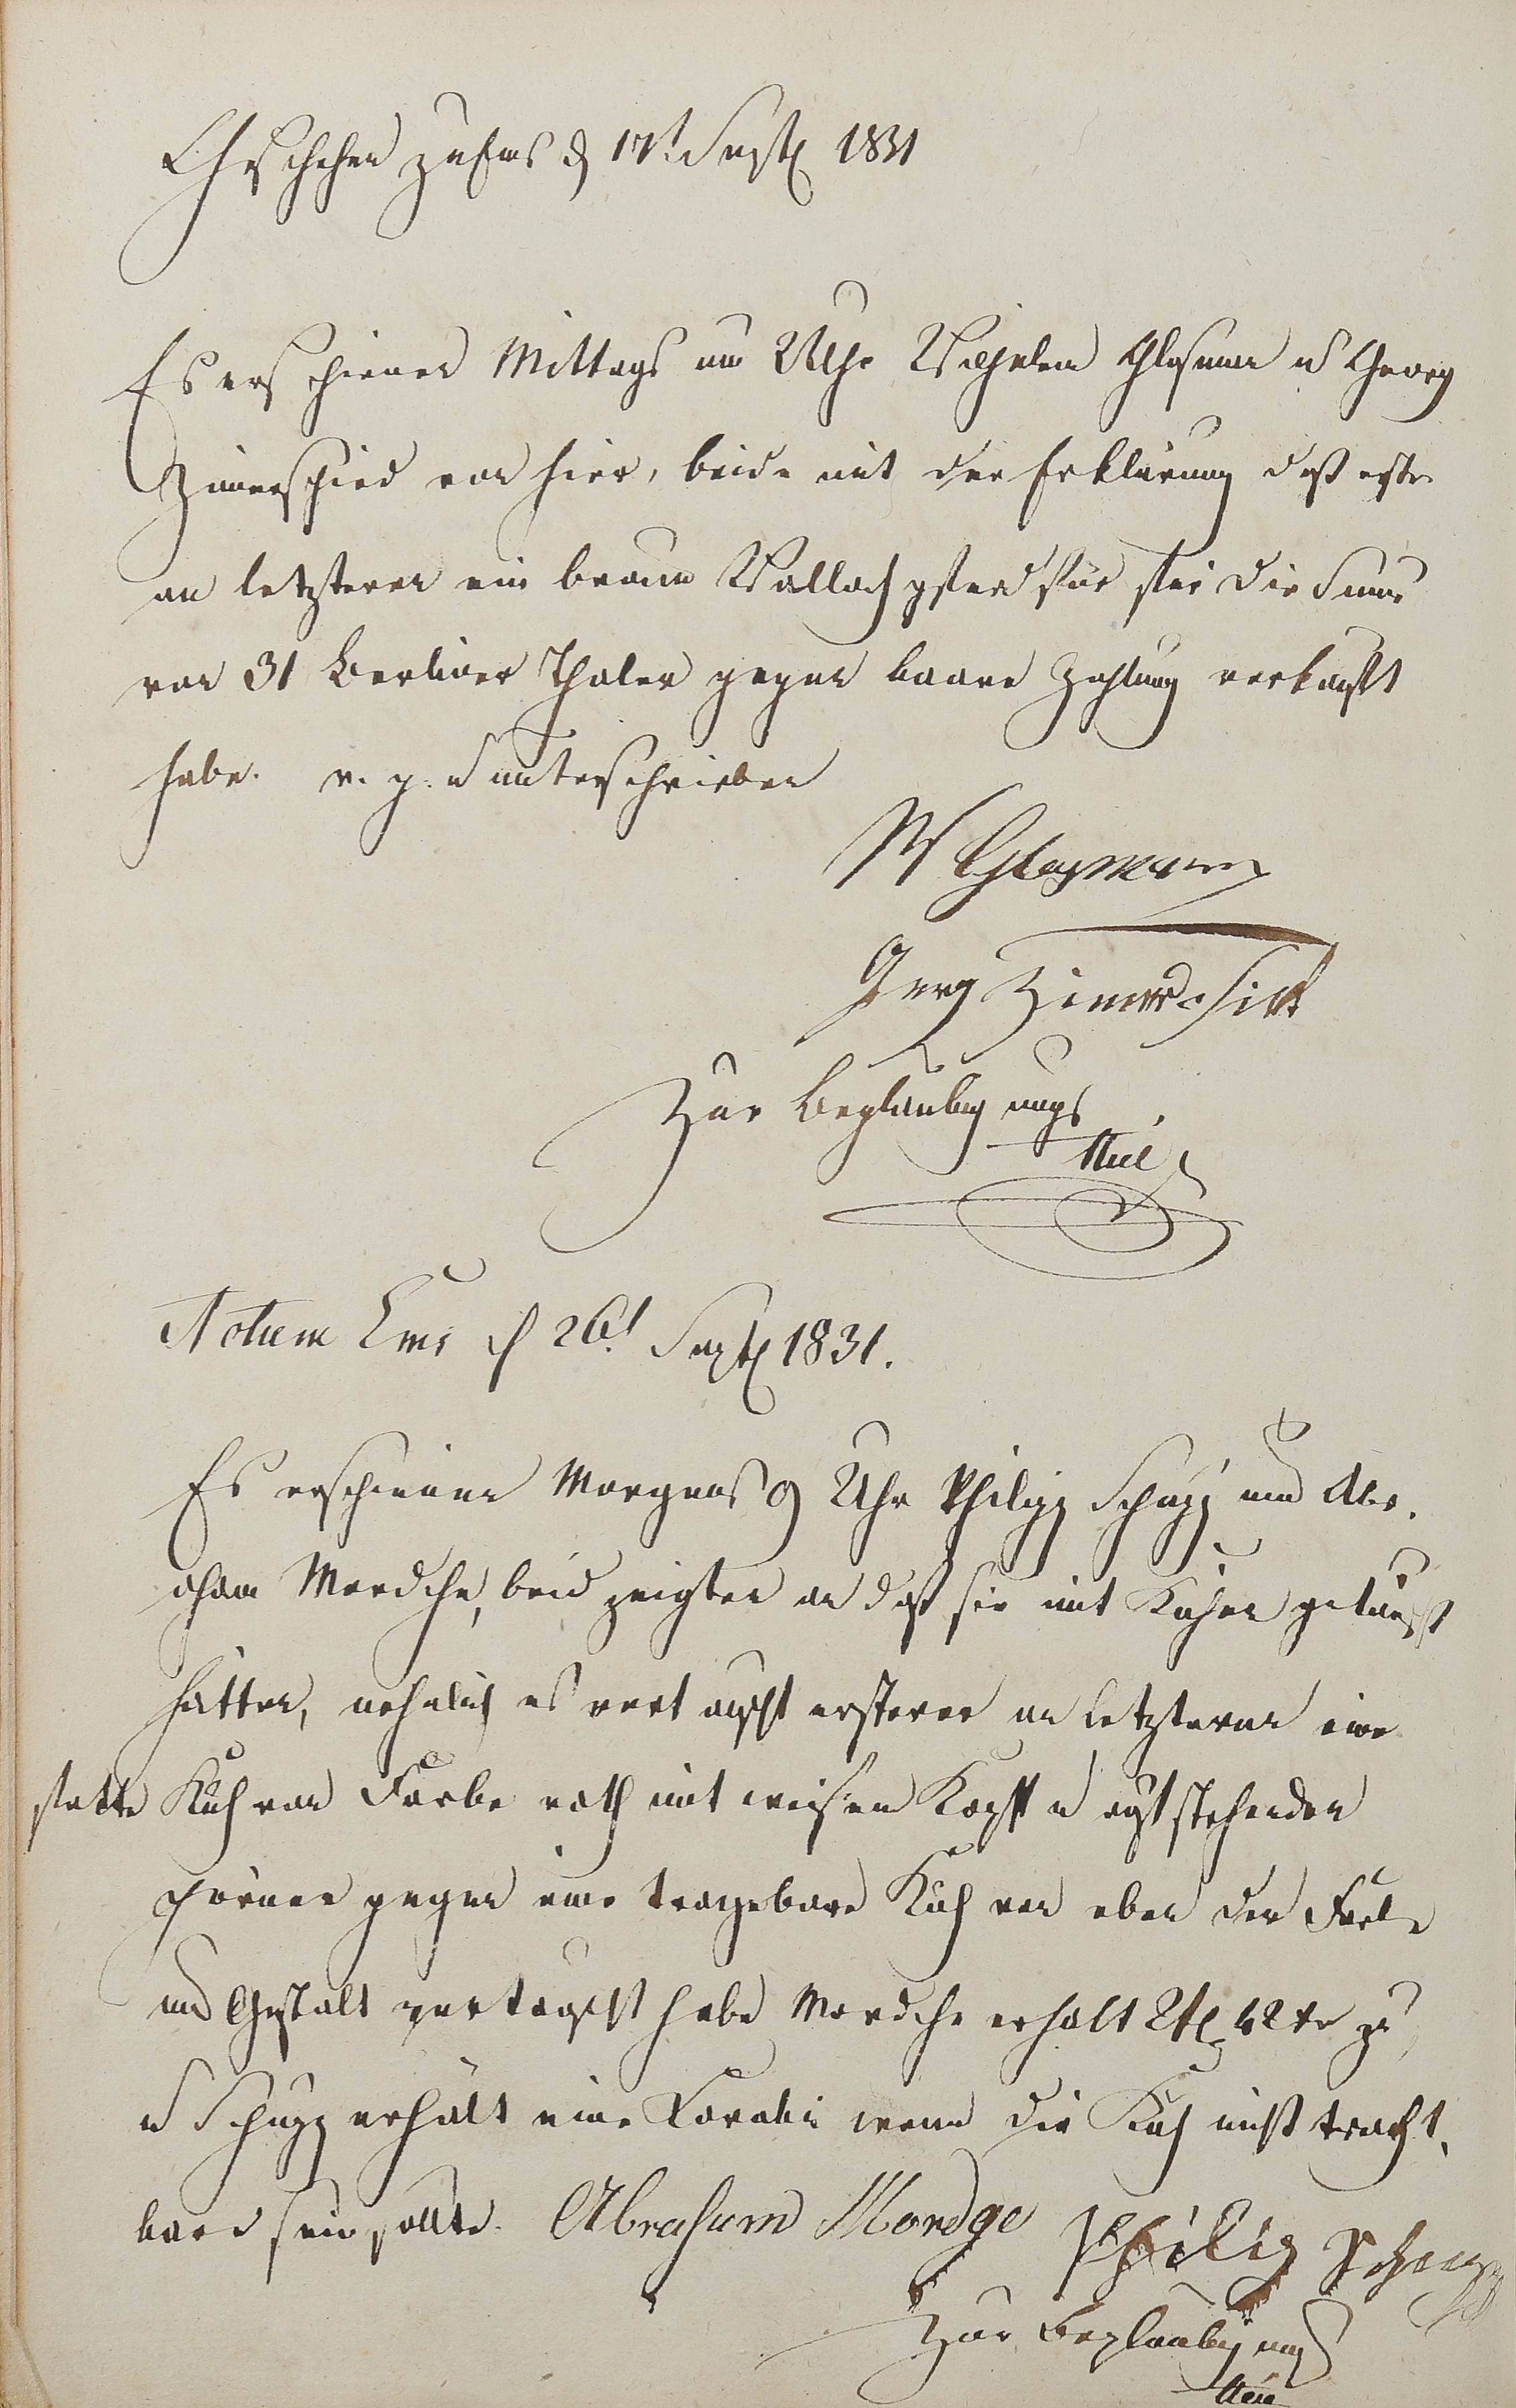 Geschehen zu Ems d 17t Septr 1831
Es erschienen Mittags um Uhr Wilhelm Glasmann u Georg
Zimerschied von hier, beide mit der Erklärung daß erster
an letzteren ein braun Wallach pferd für die Sume
von 31 Berliner Thaler gegen baare Zahlung verkauft
habe. v. g. u unterschrieben
W Glasmann
Gerg Zimerschitt
Zur Beglaubigung
Actum Ems d 26t Septr 1831.
Es erschienen Morgens 9 Uhr Philipp Schupp und Abr.
aham Mordche, beid zeigten an daß sie mit Kühen getauscht
hätten, nehmlich es vertauscht ersterer an letzteren eine
fette Kuh von Farbe roth mit weisem Kopff u aufstehenden
Hörner gegen eine tragebare Kuh von eben der Farbe
und Gestalt vertauscht habe Mordche erhalt 2 fl 42 kr zu
u Schupp erhält eine wenn die Kuh nicht tracht,
bare sein sollte. Abraham Mordge Philip Schupp
Zur Beglaubigung